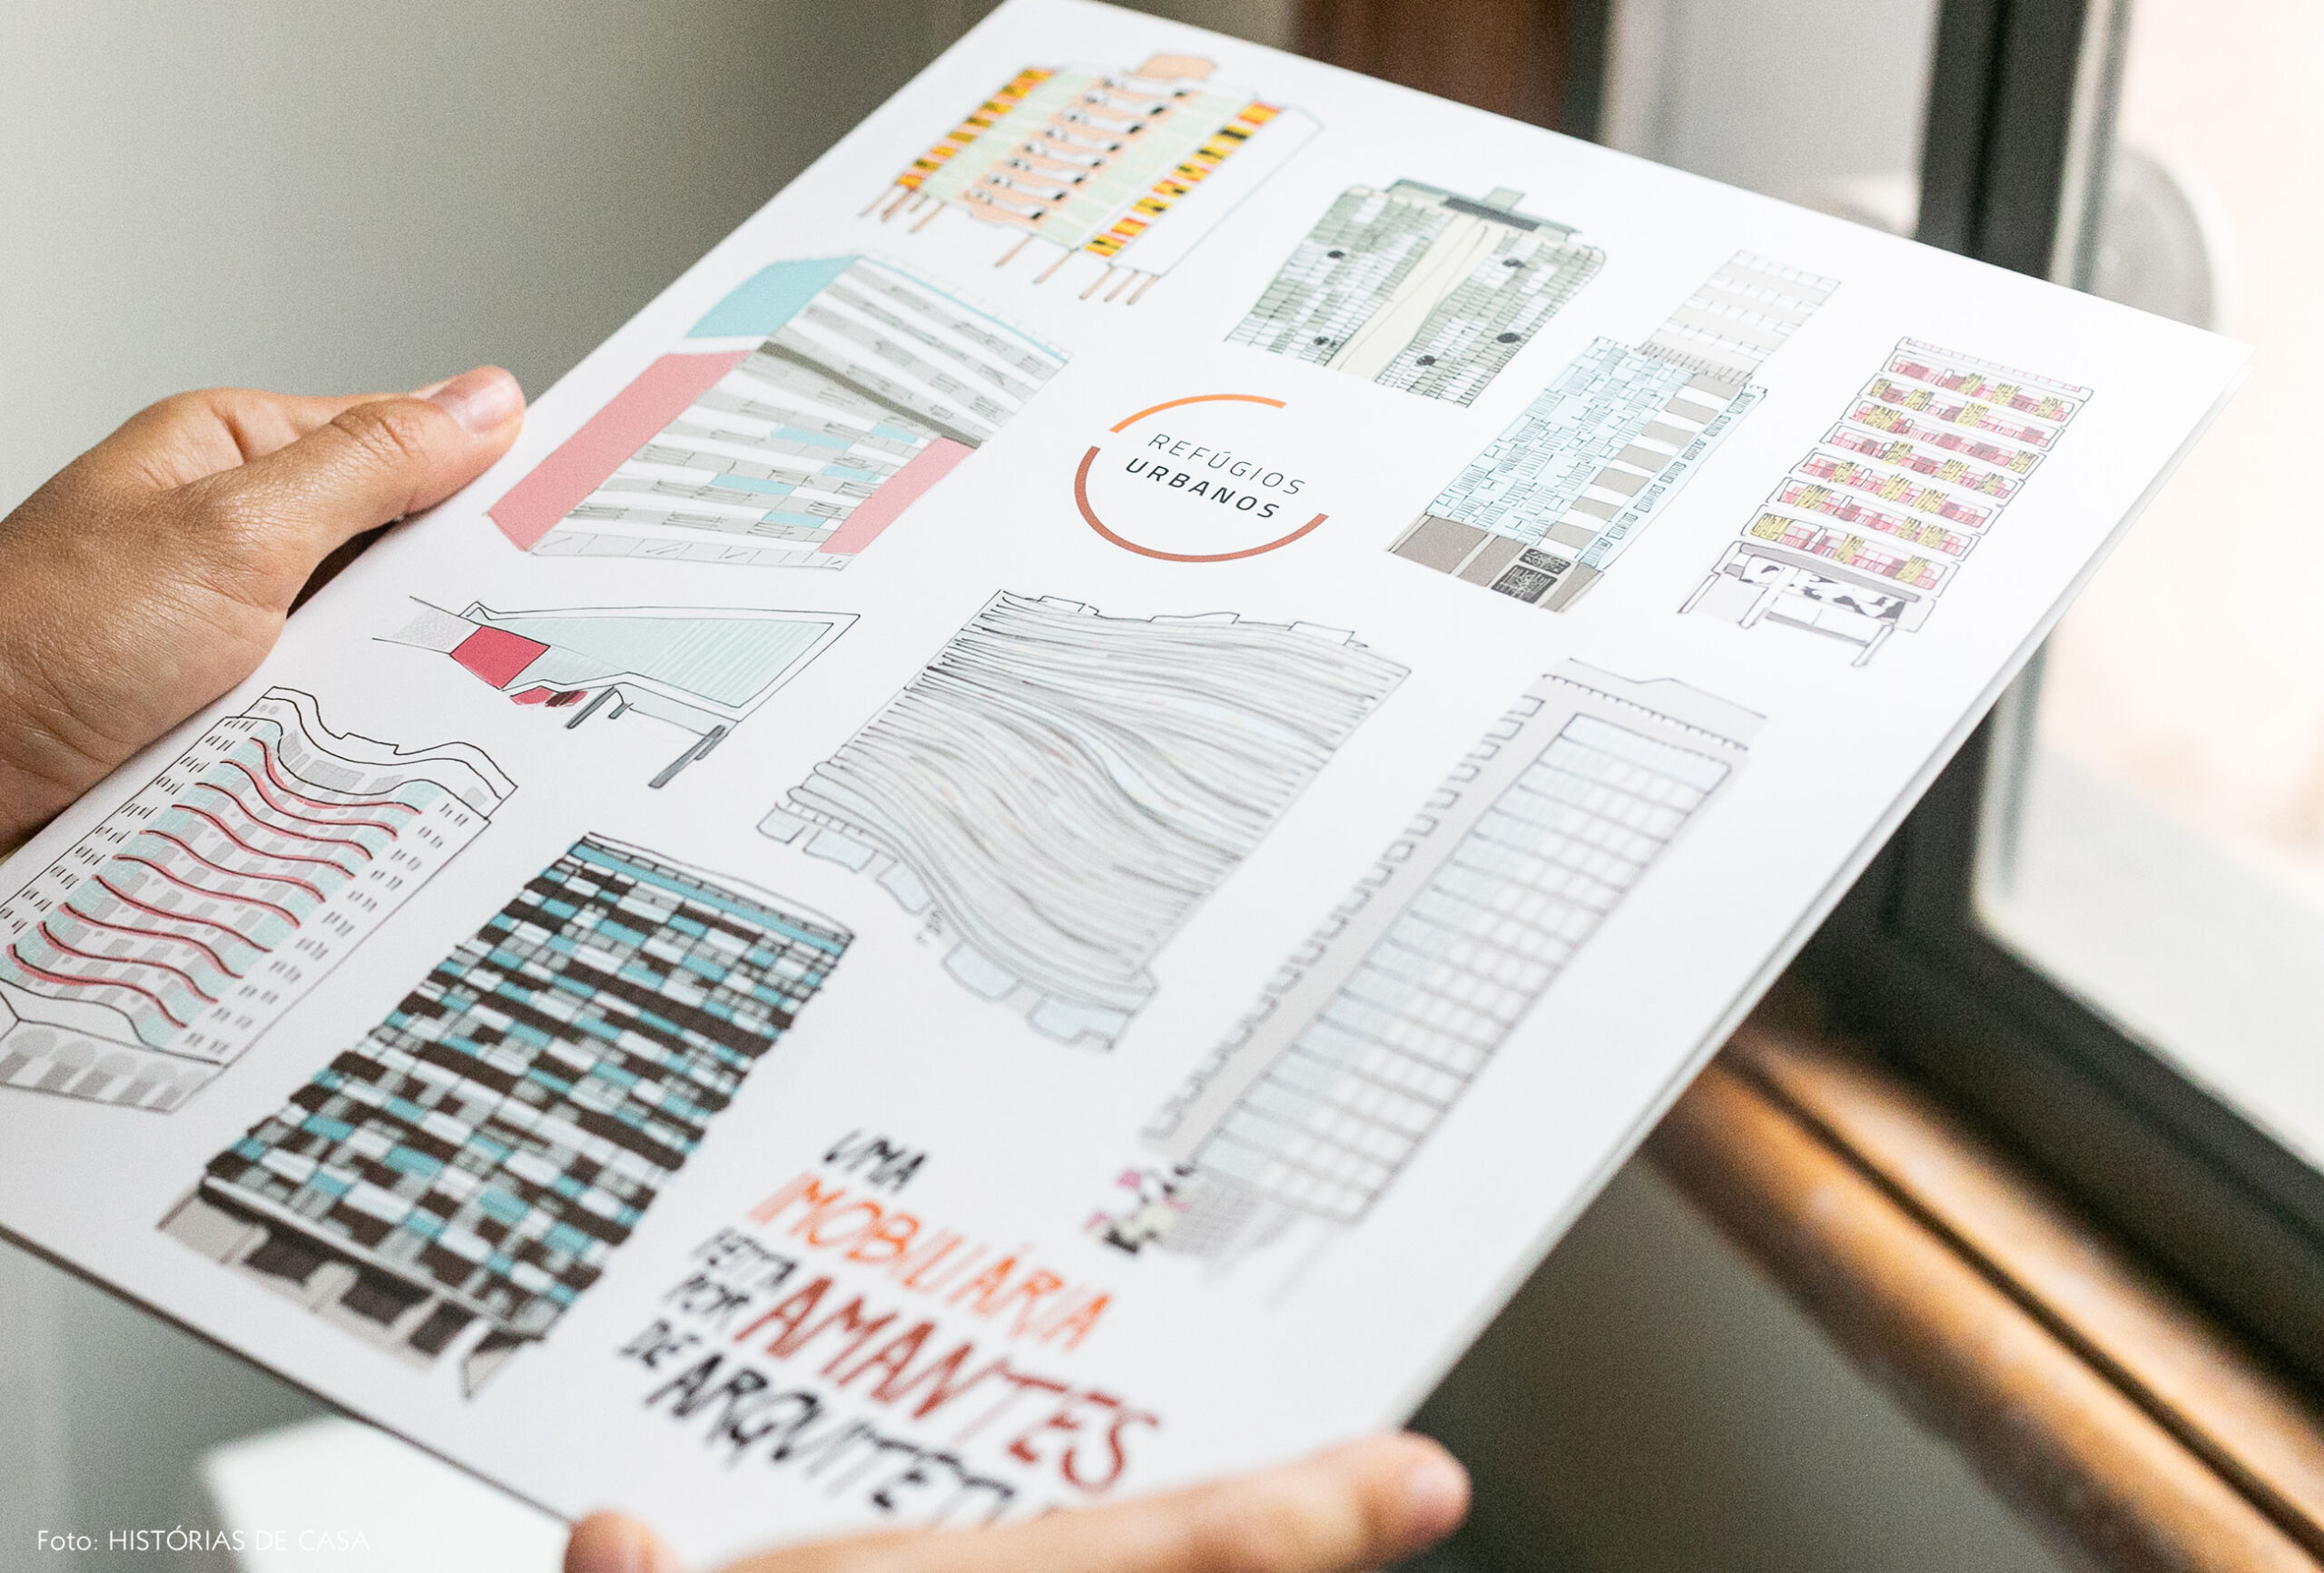 REFÚGIOS
URBANOS
UMA
IMOBILIÁRIA
FEITA
POR AMANTES
DE ARQUITET
Foto: HISTÓRIAS DE CASA